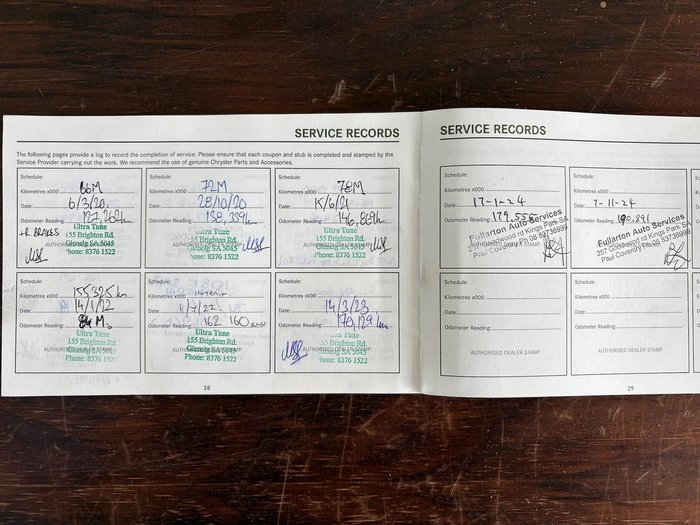 SERVICE RECORDS
The following pages provide a log to record the completion of service. Please ensure that each coupon and stub is completed and stamped by the
Service Provider carrying out the work. We recommend the use of genuine Chrysler Parts and Accessories.
Schedule:
66M
Kilometres x000
Date: 6/3/20
Odometer Reading: 127,262km
+R. BRAKES
Ultra Tune
155 Brighton Rd
Glenelg SA 5045
AUTHORISED DEALER STAMP
Phone: 8376 1522
Schedule:
72M
Kilometres x000
Date: 28/10/20
Odometer Reading: 138,339km
Ultra Tune
155 Brighton Rd.
Glenelg SA 5045
AUTHORISED DEALER STAMP
Phone: 8376 1522
Schedule:
78M
Kilometres x000
Date: 15/6/21
Odometer Reading: 146,869km
Ultra Tune
155 Brighton Rd.
Glenelg SA 5045
AUTHORISED DEALER STAMP
Phone: 8376 1522
Schedule:
Kilometres x000 155325 km
Date: 14/1/22
Odometer Reading: 84 M.
Ultra Tune
155 Brighton Rd.
Glenelg SA 5045
AUTHORISED DEALER STAMP
Phone: 8376 1522
Schedule:
Kilometres x000
Date: /7/22
Odometer Reading: 162 160
Ultra Tune
155 Brighton Rd.
Glenelg SA 5045
AUTHORISED DEALER STAMP
Phone: 8376 1522
Schedule:
Kilometres x000
Date: 14/3/23
Odometer Reading: 170,129 km
Ultra Tune
155 Brighton Rd.
Glenelg SA 5045
AUTHORISED DEALER STAMP
Phone: 8376 1522
28
SERVICE RECORDS
Schedule:
Kilometres x000
Date: 17-1-24
Odometer Reading: 179,555
Fullarton Auto Services
257 Goodwood rd Kings Park SA
Paul Coventry Ph 08 83736999
Schedule:
Kilometres x000
Date: 7-11-24
Odometer Reading: 190,891
Fullarton Auto Services
257 Goodwood rd Kings Park SA
Paul Coventry Ph 08 83736999
Schedule:
Kilometres x000
Date:
Odometer Reading:
AUTHORISED DEALER STAMP
Schedule:
Kilometres x000
Date:
Odometer Reading:
AUTHORISED DEALER STAMP
29